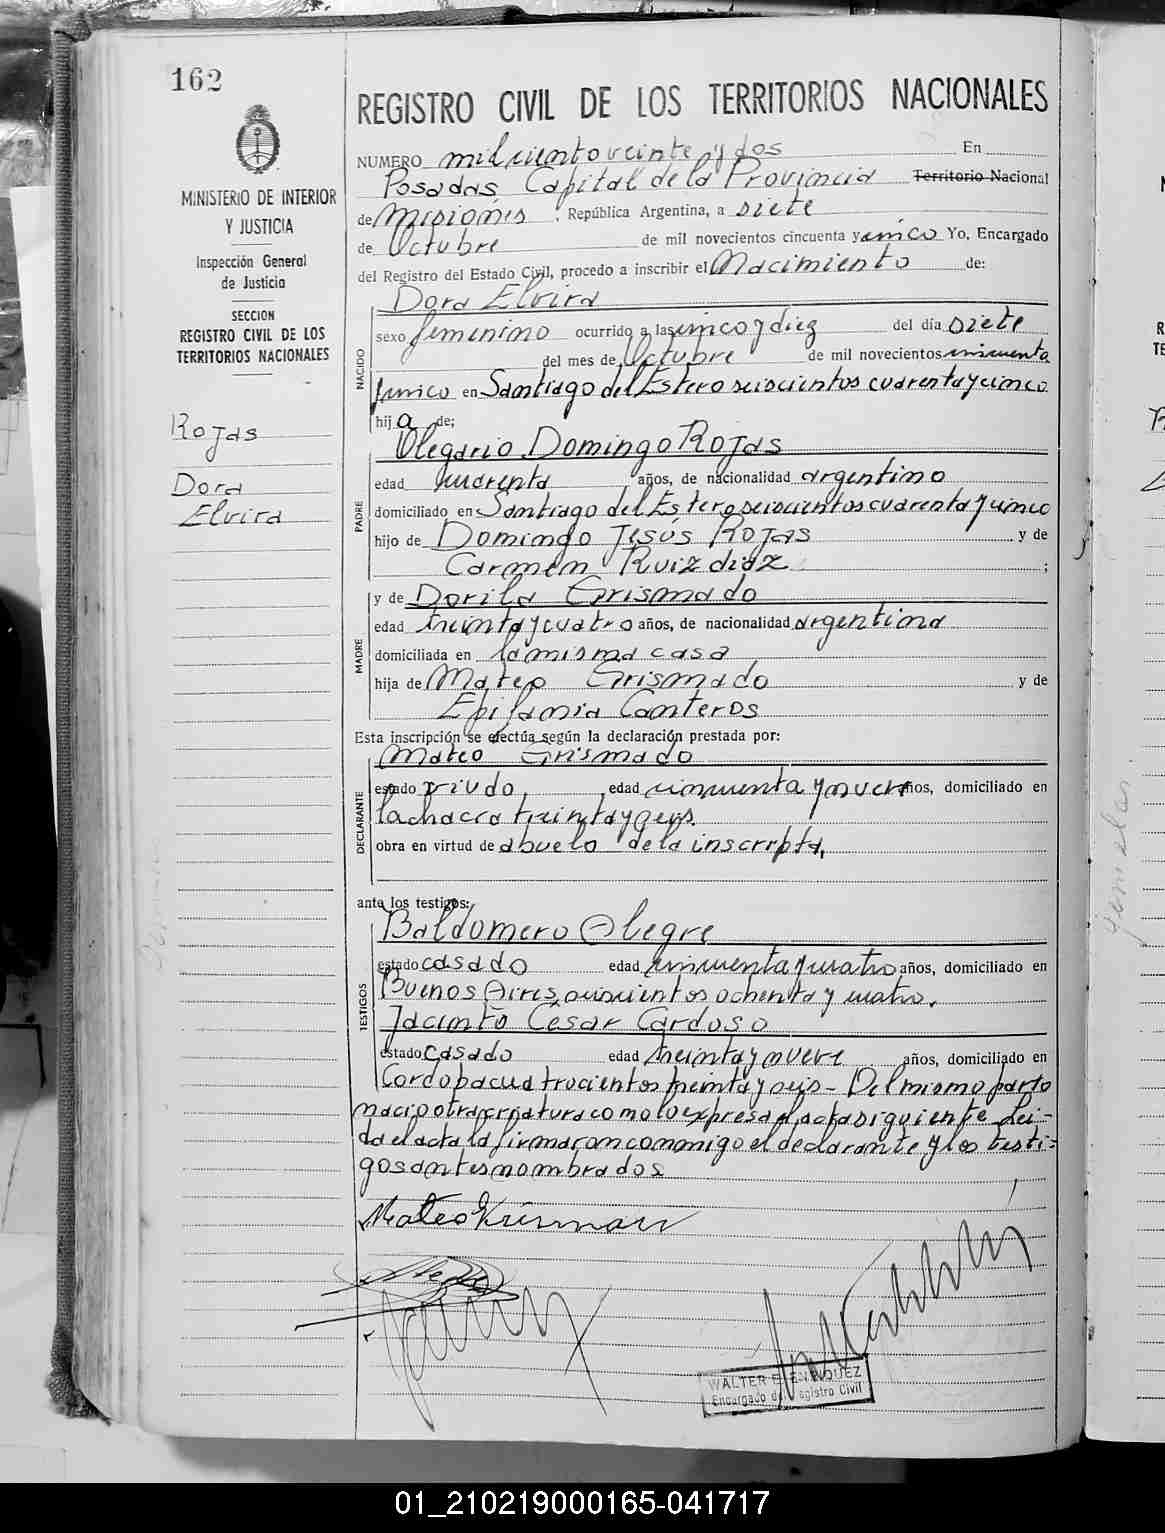 162
MINISTERIO DE INTERIOR
Y JUSTICIA
Inspección General
de Justicia
SECCION
REGISTRO CIVIL DE LOS
TERRITORIOS NACIONALES
Rojas
Dora
Elvira
REGISTRO CIVIL DE LOS TERRITORIOS NACIONALES
NUMERO mil ciento veinte y dos En
Posadas Capital de la Provincia Territorio Nacional
de Misiones. República Argentina, a siete
de Octubre de mil novecientos cincuenta y cinco Yo, Encargado
del Registro del Estado Civil, procedo a inscribir el Nacimiento de:
NACIDO
Dora Elvira
sexo femenino ocurrido a las cinco y diez del día siete
del mes de Octubre de mil novecientos cincuenta
y cinco en Santiago del Estero seiscientos cuarenta y cinco
hij a de;
PADRE
Olegario Domingo Rojas
edad cuarenta años, de nacionalidad argentino
domiciliado en Santiago del Estero seiscientos cuarenta y cinco
hijo de Domingo Jesús Rojas y de
Carmen Ruiz diaz ;
MADRE
y de Dorila Grismado
edad treinta y cuatro años, de nacionalidad argentina
domiciliada en la misma casa
hija de Mateo Grismado y de
Epifania Canteros
Esta inscripción se efectúa según la declaración prestada por:
DECLARANTE
Mateo Grismado
estado viudo, edad cincuenta y nueve años, domiciliado en
la chacra treinta y seis.
obra en virtud de abuelo de la inscripta,
ante los testigos:
TESTIGOS
Baldomero Alegre
estado casado edad cincuenta y cuatro años, domiciliado en
Buenos Aires seiscientos ochenta y cuatro.
Jacinto César Cardoso
estado casado edad treinta y nueve años, domiciliado en
Cordoba cuatrocientos treinta y seis - Del mismo parto
nacio otra criatura como lo expresa el acta siguiente. Lei-
da el acta la firmaron conmigo el declarante y los testi-
gos antes nombrados
WALTER E. ENRIQUEZ
Encargado del Registro Civil
01_210219000165-041717